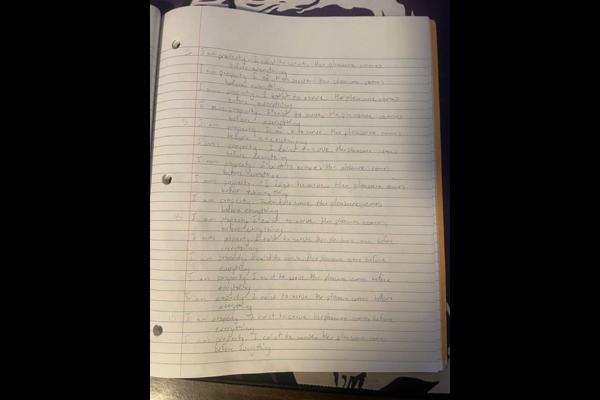 I am property. I exist to serve. Her pleasure comes
before everything
I am property. I exist to serve. Her pleasure comes
before everything
I am property. I exist to serve. Her pleasure comes
before everything
I am property. I exist to serve. Her pleasure comes
before everything
5 I am property. I exist to serve. Her pleasure comes
before everything
I am property. I exist to serve. Her pleasure comes
before everything
I am property. I exist to serve. Her pleasure comes
before everything
I am property. I exist to serve. Her pleasure comes
before everything
I am property. I exist to serve. Her pleasure comes
before everything
10 I am property. I exist to serve. Her pleasure comes
before everything
I am property. I exist to serve. Her pleasure comes before
everything
I am property. I exist to serve. Her pleasure comes before
everything
I am property. I exist to serve. Her pleasure comes before
everything
I am property. I exist to serve. Her pleasure comes before
everything
15 I am property. I exist to serve. Her pleasure comes before
everything
I am property. I exist to serve. Her pleasure comes
before everything